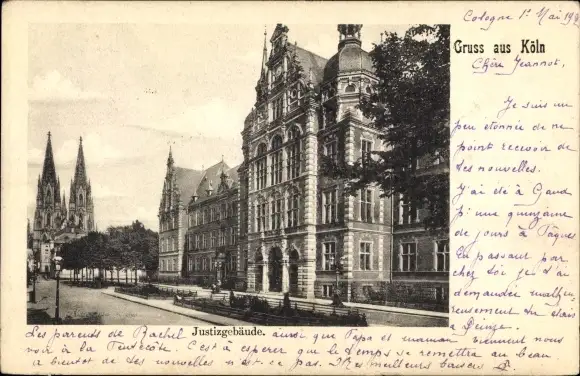 Cologne 1r Mai 190
Gruss aus Köln
Chère Jeannot,
Je suis un
peu étonnée de ne
point recevoir de
tes nouvelles.
J'ai été à Gand
p. une quinzaine
de jours à Pâques
En passant par
chez toi je t'ai
demandée malheu
reusement tu étais
à Deinze.
Justizgebäude.
Les parents de Rachel ainsi que Papa et maman viennent nous
voir à la Pentecôte. C'est à espérer que le temps se remettra au beau.
à bientôt de tes nouvelles n'est ce pas. Mes meilleurs baisers